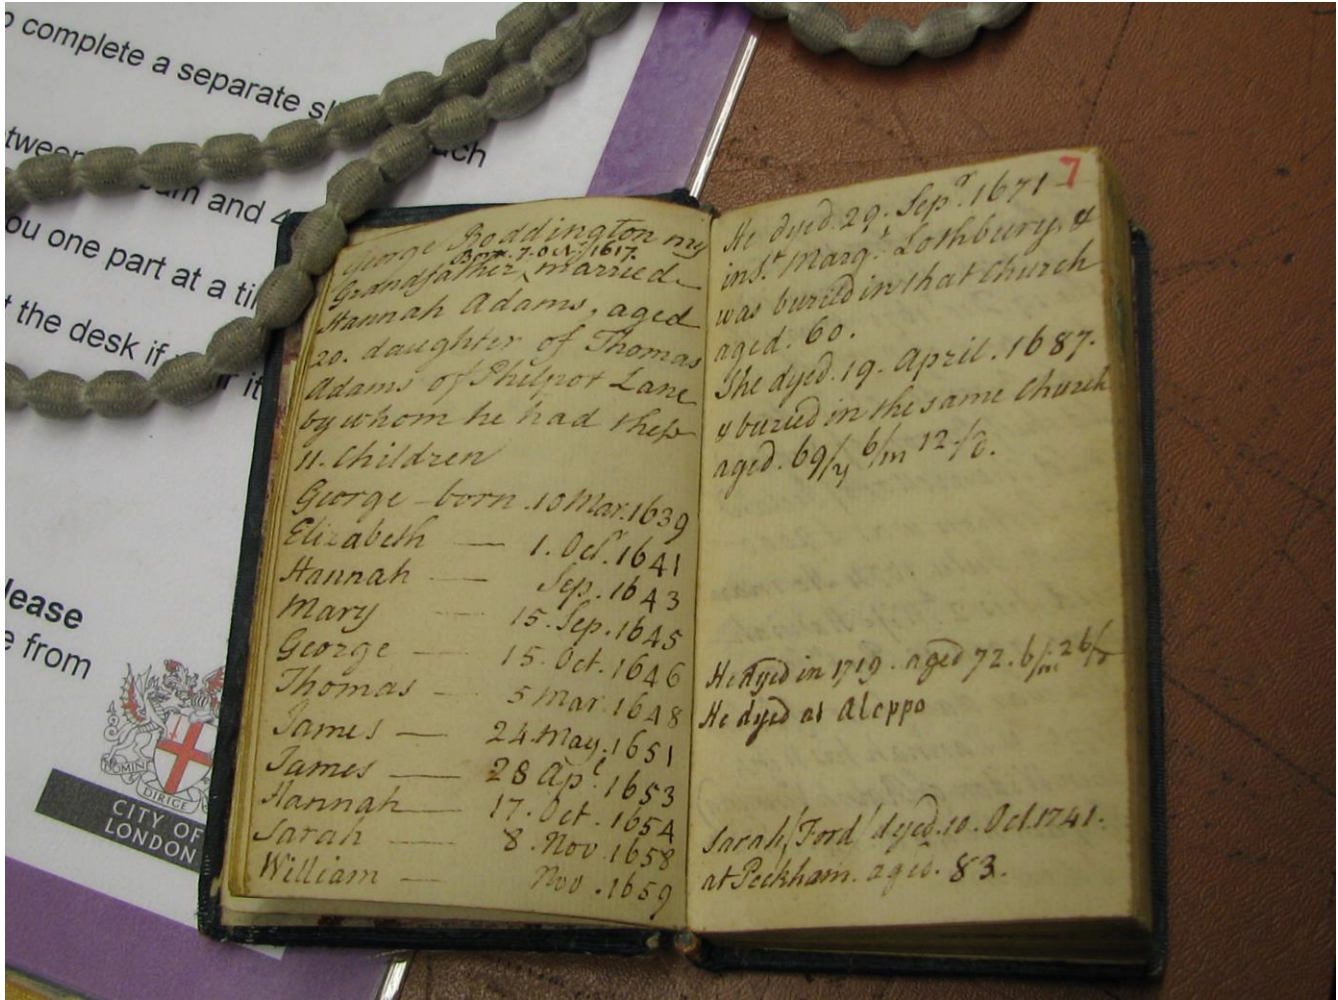 o complete a separate sl
ach
tween am and 4
ou one part at a ti
t the desk if
r it
lease
e from
DOMINE
DIRIGE
CITY OF
LONDON
George Boddington my
Born. 7. Oct. 1617.
Grandfather ^ married
Hannah Adams, aged
20. daughter of Thomas
Adams of Philpot Lane
by whom he had these
11. Children
George - born . 10 Mar. 1639
Elizabeth — 1. Oct. 1641
Hannah — Sep. 1643
Mary — 15. Sep. 1645
George — 15. Oct. 1646
Thomas — 5 Mar. 1648
James — 24. May. 1651
James — 28 Apl. 1653
Hannah — 17. Oct. 1654
Sarah — 8. Nov. 1658
William — Nov. 1659
7
He dyed. 29. Sepr. 1671
in St. Margt. Lothbury, &
was buried in that Church
aged. 60.
She dyed. 19. April. 1687.
& buried in the same Church
aged. 69/y 6/m 12/d.
He dyed in 1719. aged 72. 6/m 26/d
He dyed at Aleppo
Sarah (Ford) dyed. 10. Oct. 1741.
at Peckham. aged. 83.